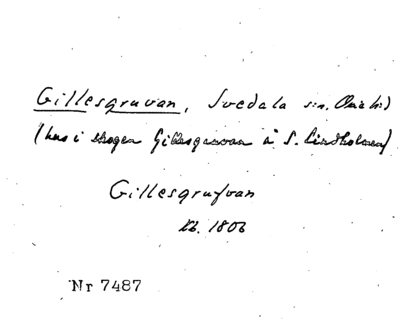 Gillesgruvan, Svedala sn. Oxie hd
(hus i skogen Gillesgruvan å S. Lindholmen)
Gillesgrufvan
kb. 1806
Nr 7487